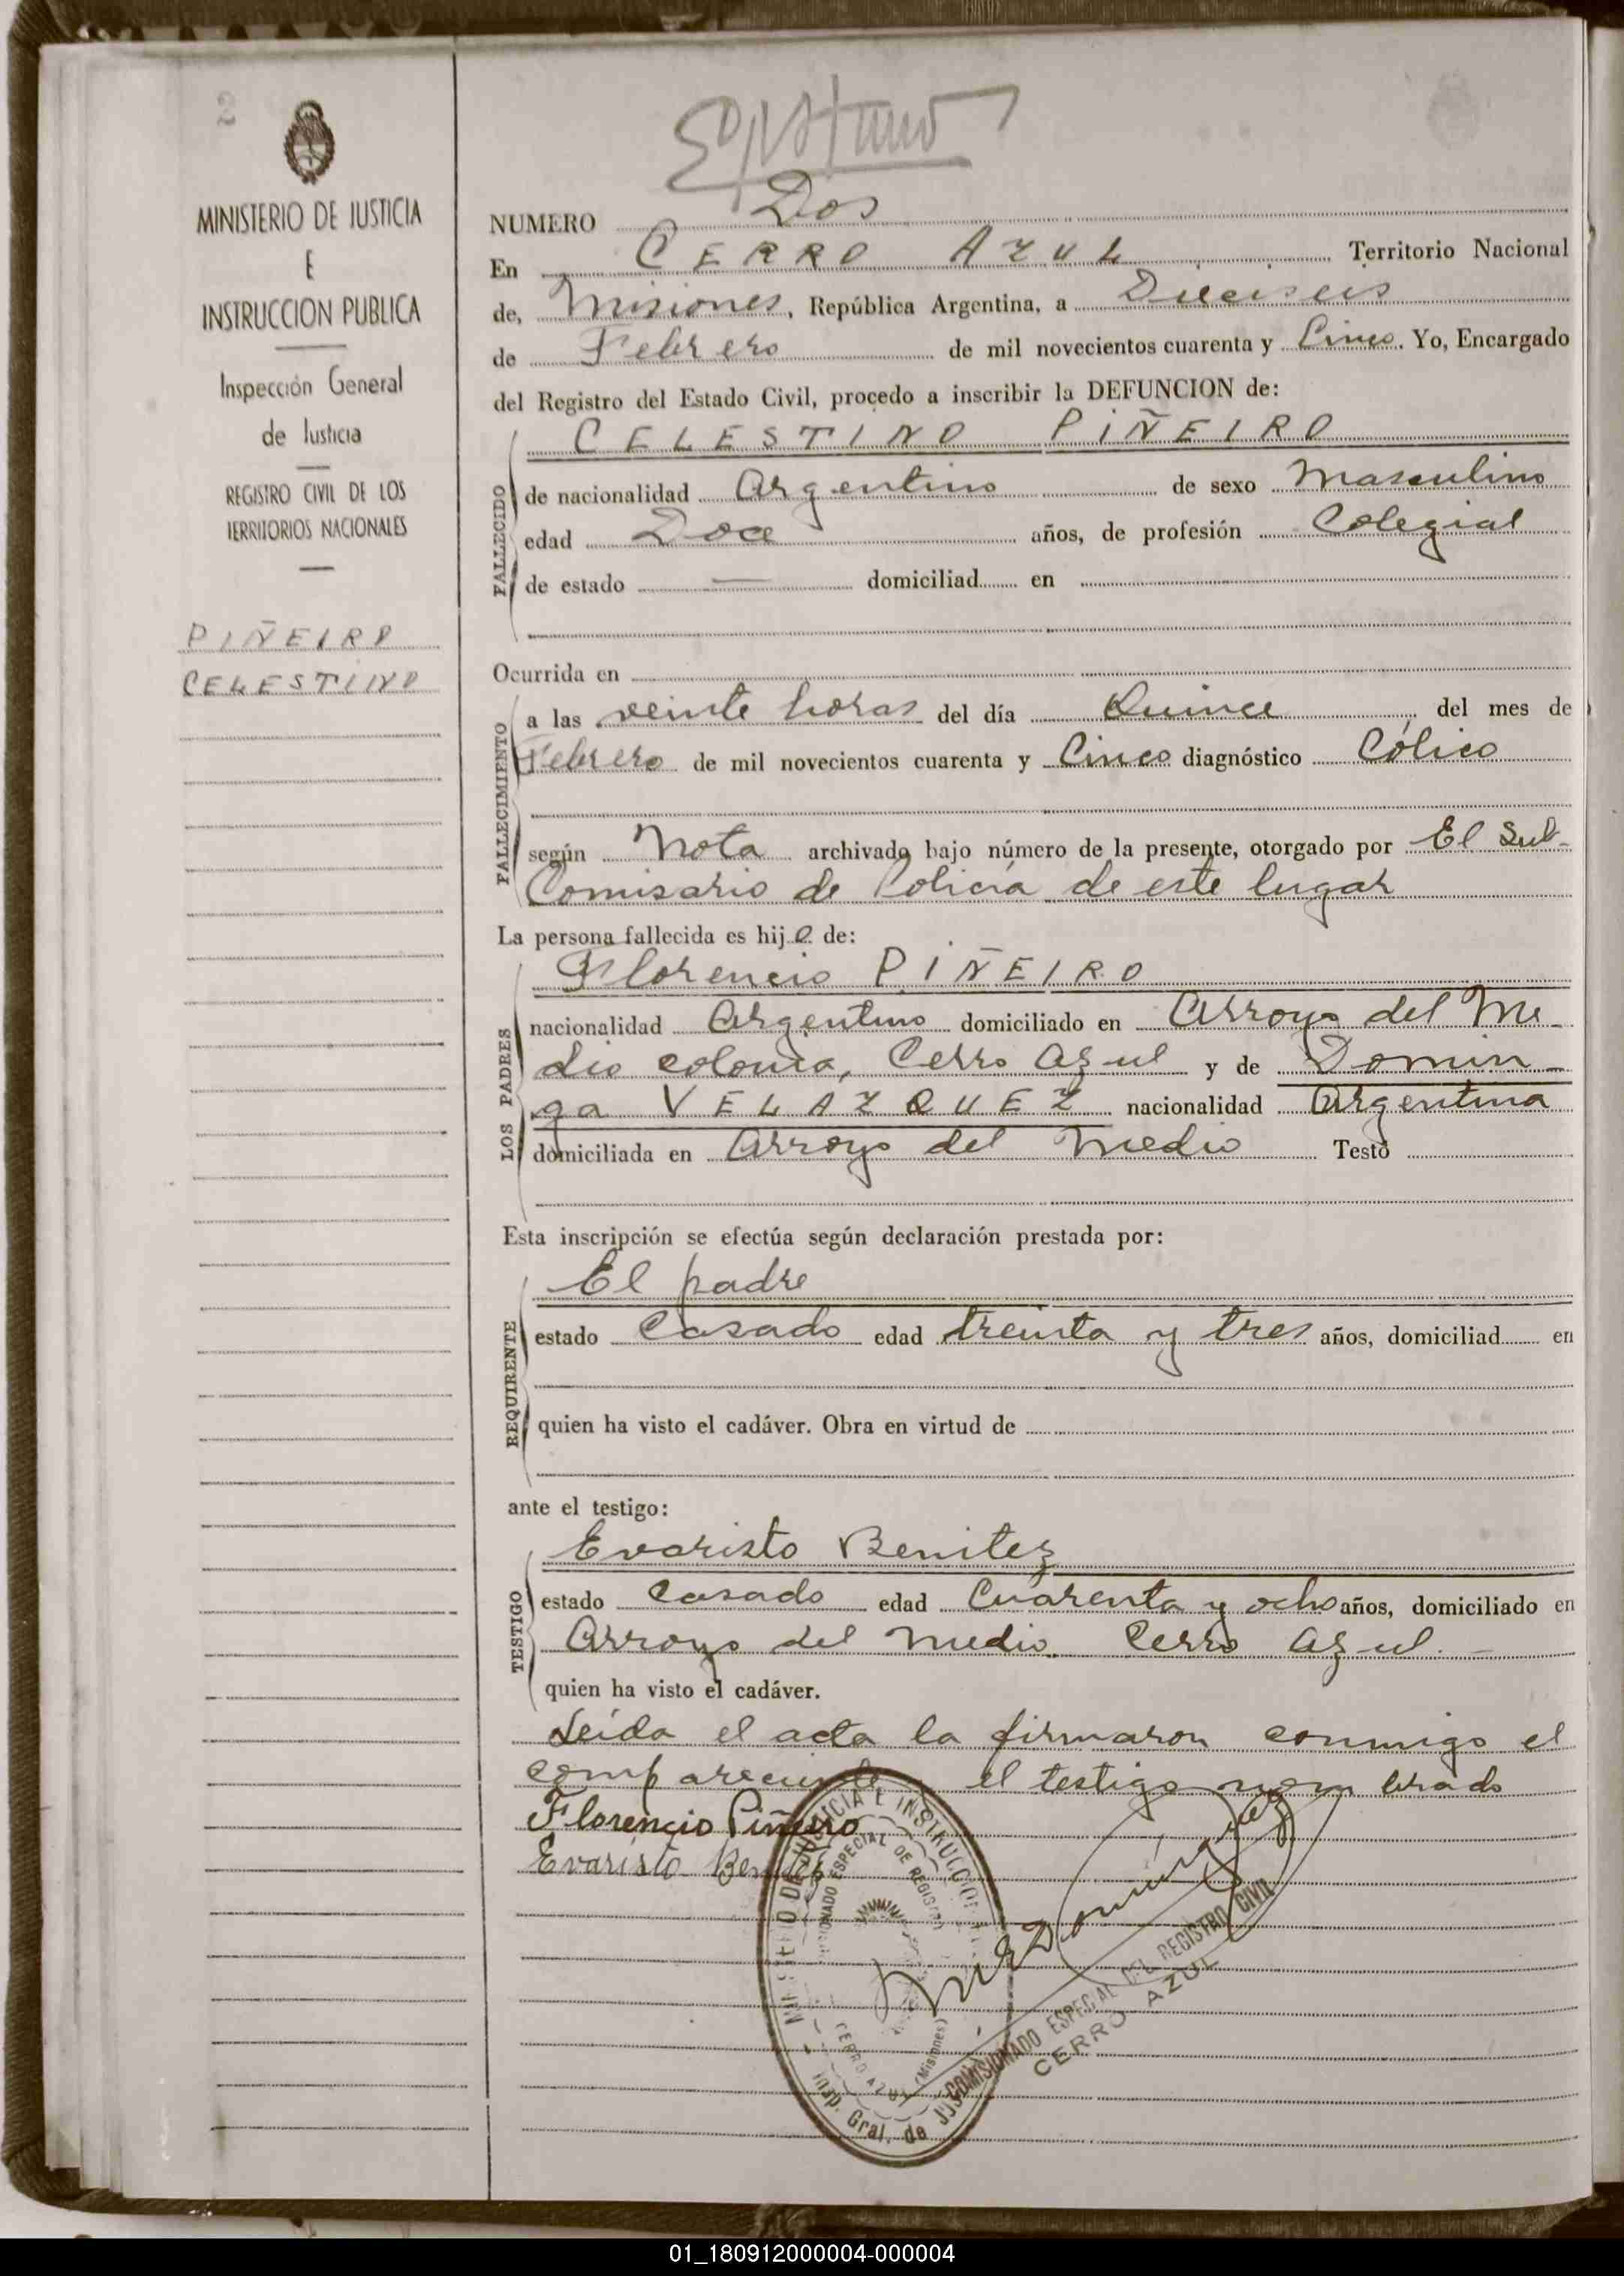 2
MINISTERIO DE JUSTICIA
E
INSTRUCCION PUBLICA
Inspección General
de Justicia
REGISTRO CIVIL DE LOS
TERRITORIOS NACIONALES
PIÑEIRO
CELESTINO
NUMERO Dos
En CERRO AZUL Territorio Nacional
de, Misiones, República Argentina, a Dieciseis
de Febrero de mil novecientos cuarenta y Cinco. Yo, Encargado
del Registro del Estado Civil, procedo a inscribir la DEFUNCION de:
CELESTINO PIÑEIRO
FALLECIDO
de nacionalidad Argentino de sexo Masculino
edad Doce años, de profesión Colegial
de estado — domiciliad en
Ocurrida en
FALLECIMIENTO
a las veinte horas del día Quince, del mes de
Febrero de mil novecientos cuarenta y Cinco diagnóstico Cólico
según Nota archivado bajo número de la presente, otorgado por El Sub-
Comisario de Policia de este lugar
La persona fallecida es hijo de:
Florencio PIÑEIRO
LOS PADRES
nacionalidad Argentino domiciliado en Arroyo del Me-
dio colonia, Cerro Azul y de Domin-
ga VELAZQUEZ nacionalidad Argentina
domiciliada en Arroyo del Medio Testó
Esta inscripción se efectúa según declaración prestada por:
El padre
REQUIRENTE
estado Casado edad treinta y tres años, domiciliad en
quien ha visto el cadáver. Obra en virtud de
ante el testigo:
Evaristo Benitez
TESTIGO
estado Casado edad Cuarenta y ocho años, domiciliado en
Arroyo del Medio Cerro Azul. -
quien ha visto el cadáver.
Leída el acta la firmaron conmigo el
compareciente y el testigo nombrado
Florencio Piñeiro
Evaristo Benitez
MINISTERIO DE JUSTICIA E INSTRUCCION
COMISIONADO ESPECIAL DE REGISTRO
CERRO AZUL (Misiones)
Insp. Gral. de
COMISIONADO ESPECIAL DEL REGISTRO CIVIL
CERRO AZUL
01_180912000004-000004